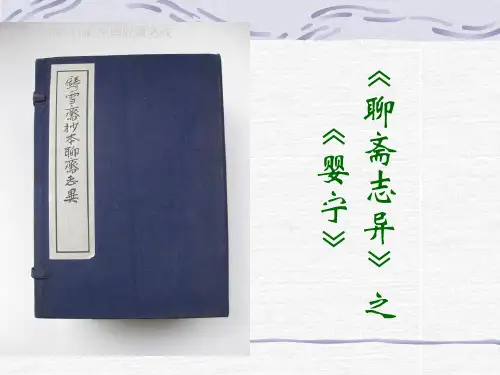 鑄雪齋抄本聊齋志異
《聊斋志异》之
《婴宁》